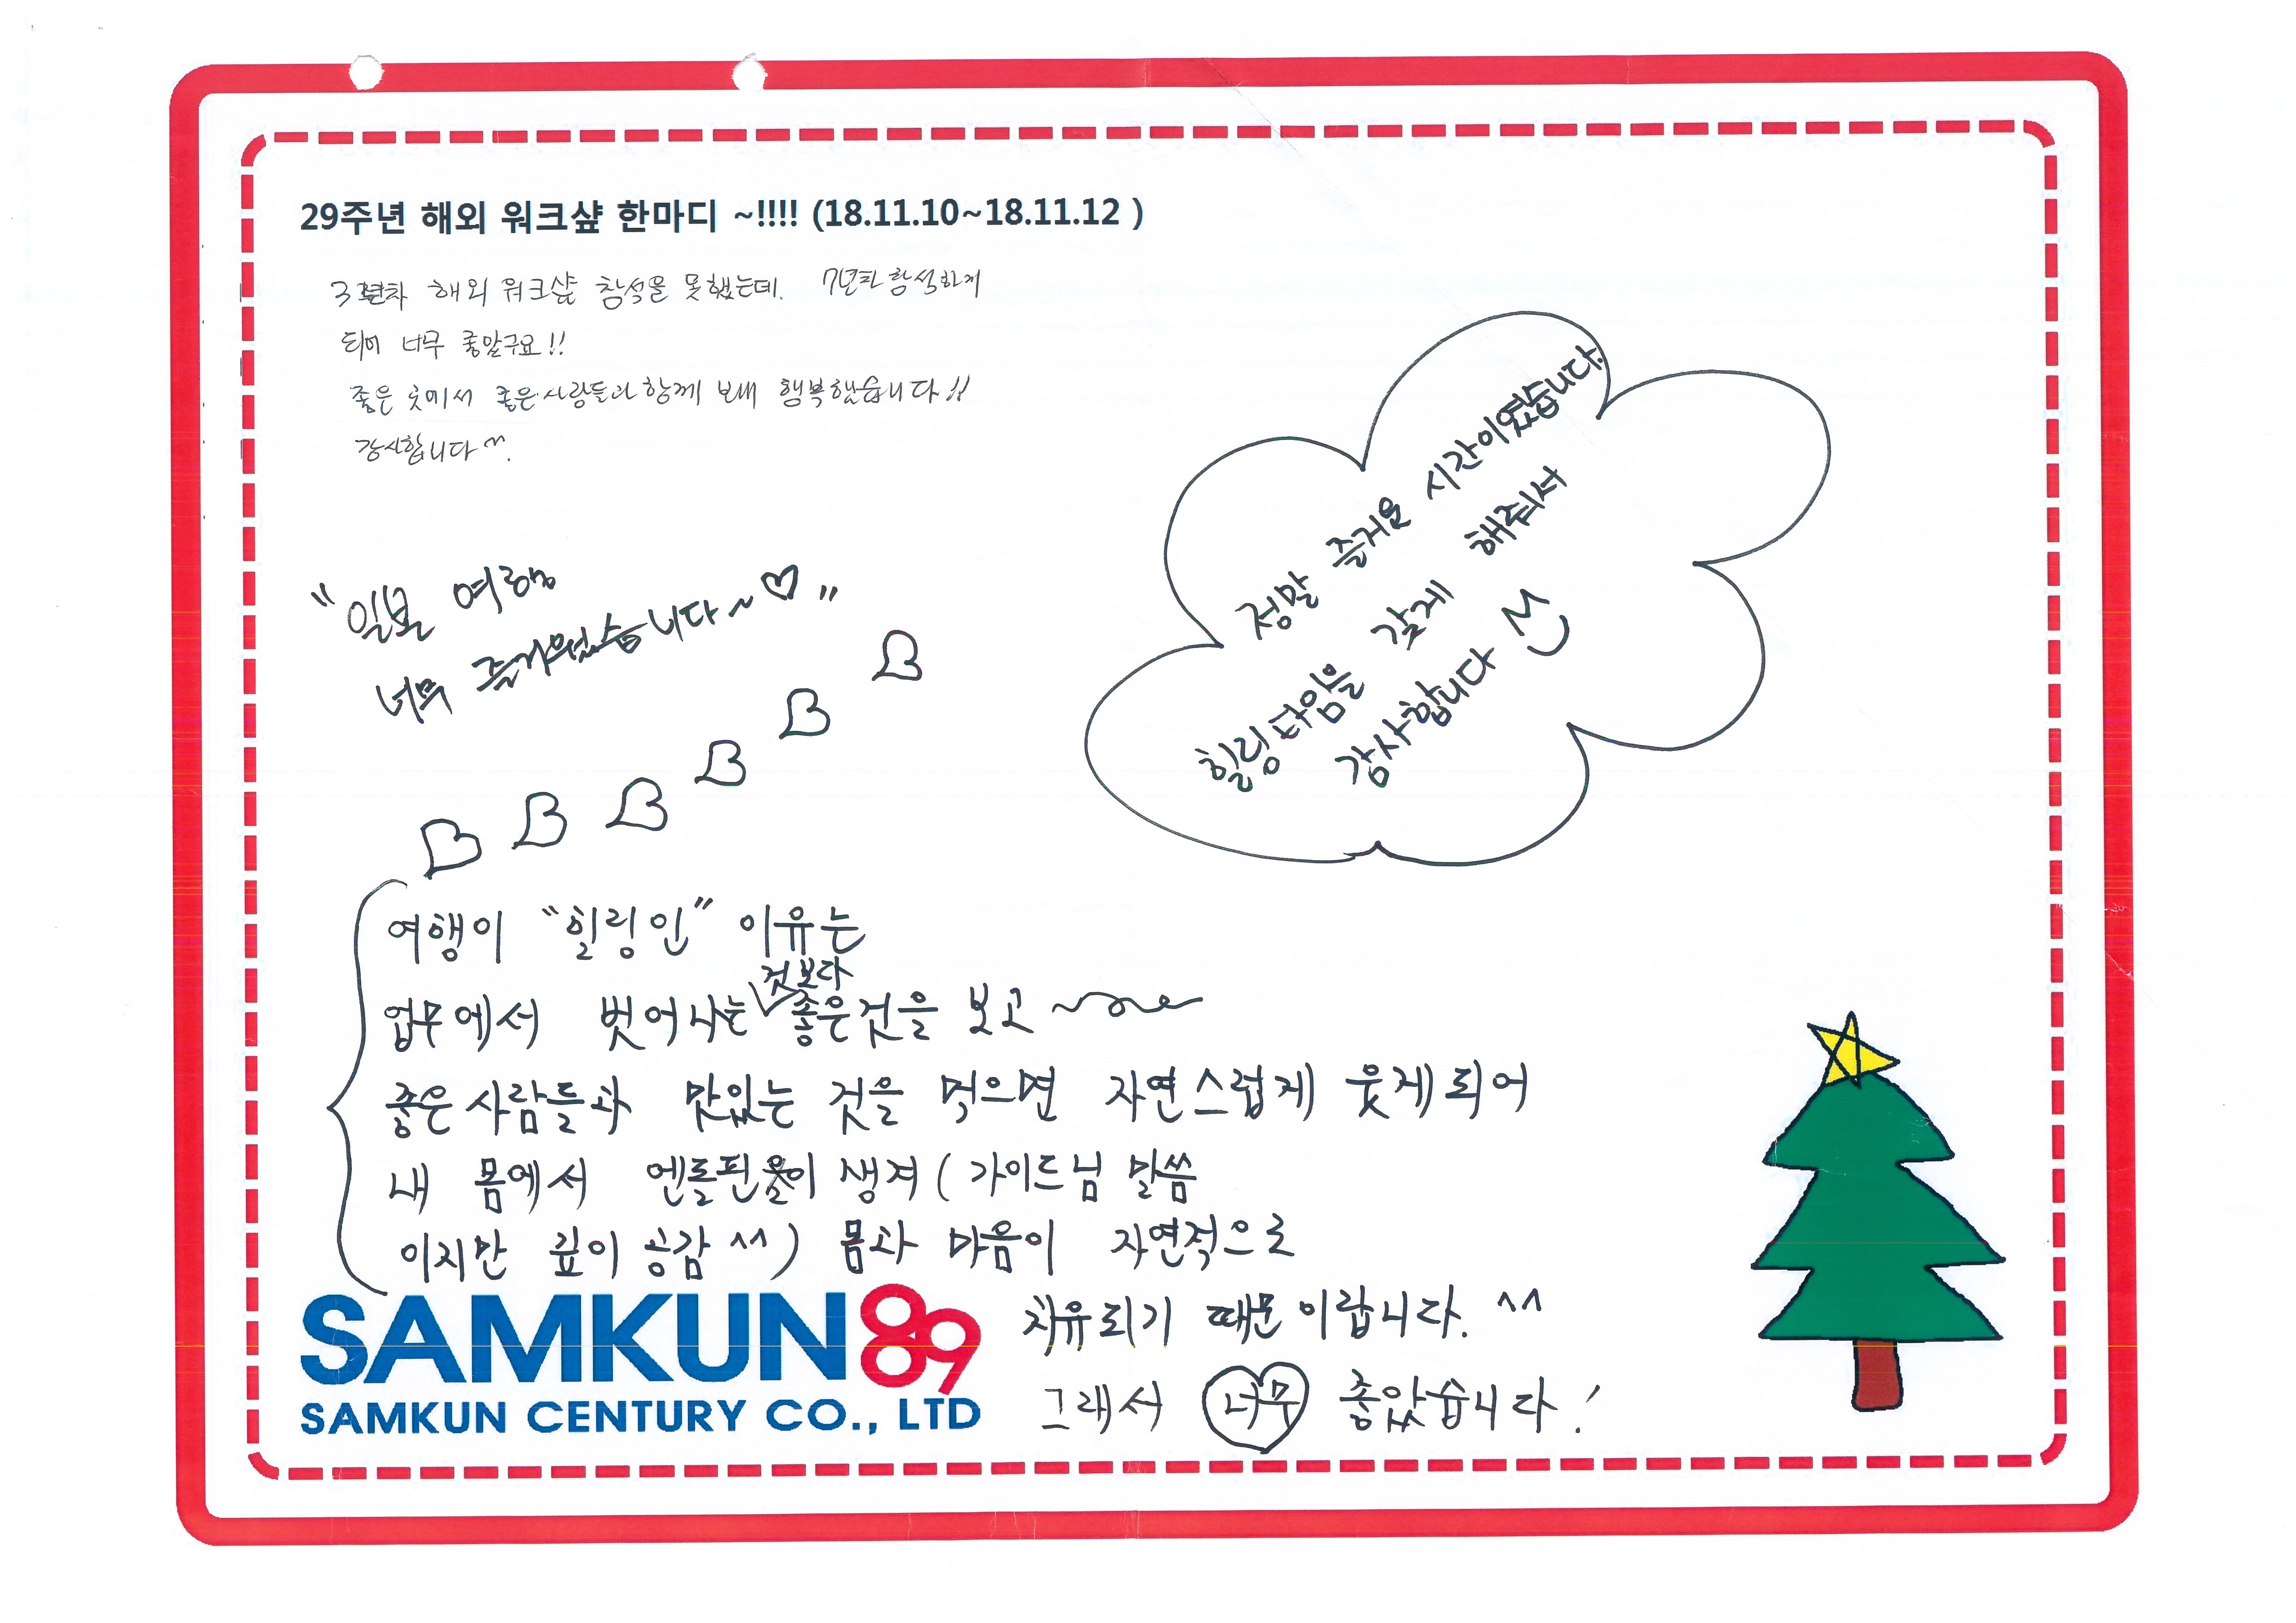 29주년 해외 워크샾 한마디 ~!!!! (18.11.10~18.11.12 )
3년차 해외 워크샾 참석을 못했는데. 7년차 참석하게
되어 너무 좋았구요!!
좋은 곳에서 좋은 사람들과 함께 보내 행복했습니다!!
감사합니다^^.
정말 즐거운 시간이였습니다.
힐링타임을 갖게 해줘서
감사합니다
"일본 여행
너무 즐거웠습니다~♡"
여행이 "힐링인" 이유는
것보다
업무에서 벗어나는 좋은것을 보고
좋은 사람들과 맛있는 것을 먹으면 자연스럽게 웃게되어
내 몸에서 엔돌핀이 생겨 (가이드님 말씀
이지만 깊이 공감 ^^) 몸과 마음이 자연적으로
치유되기 때문이랍니다. ^^
그래서 너무 좋았습니다!
SAMKUN89
SAMKUN CENTURY CO., LTD